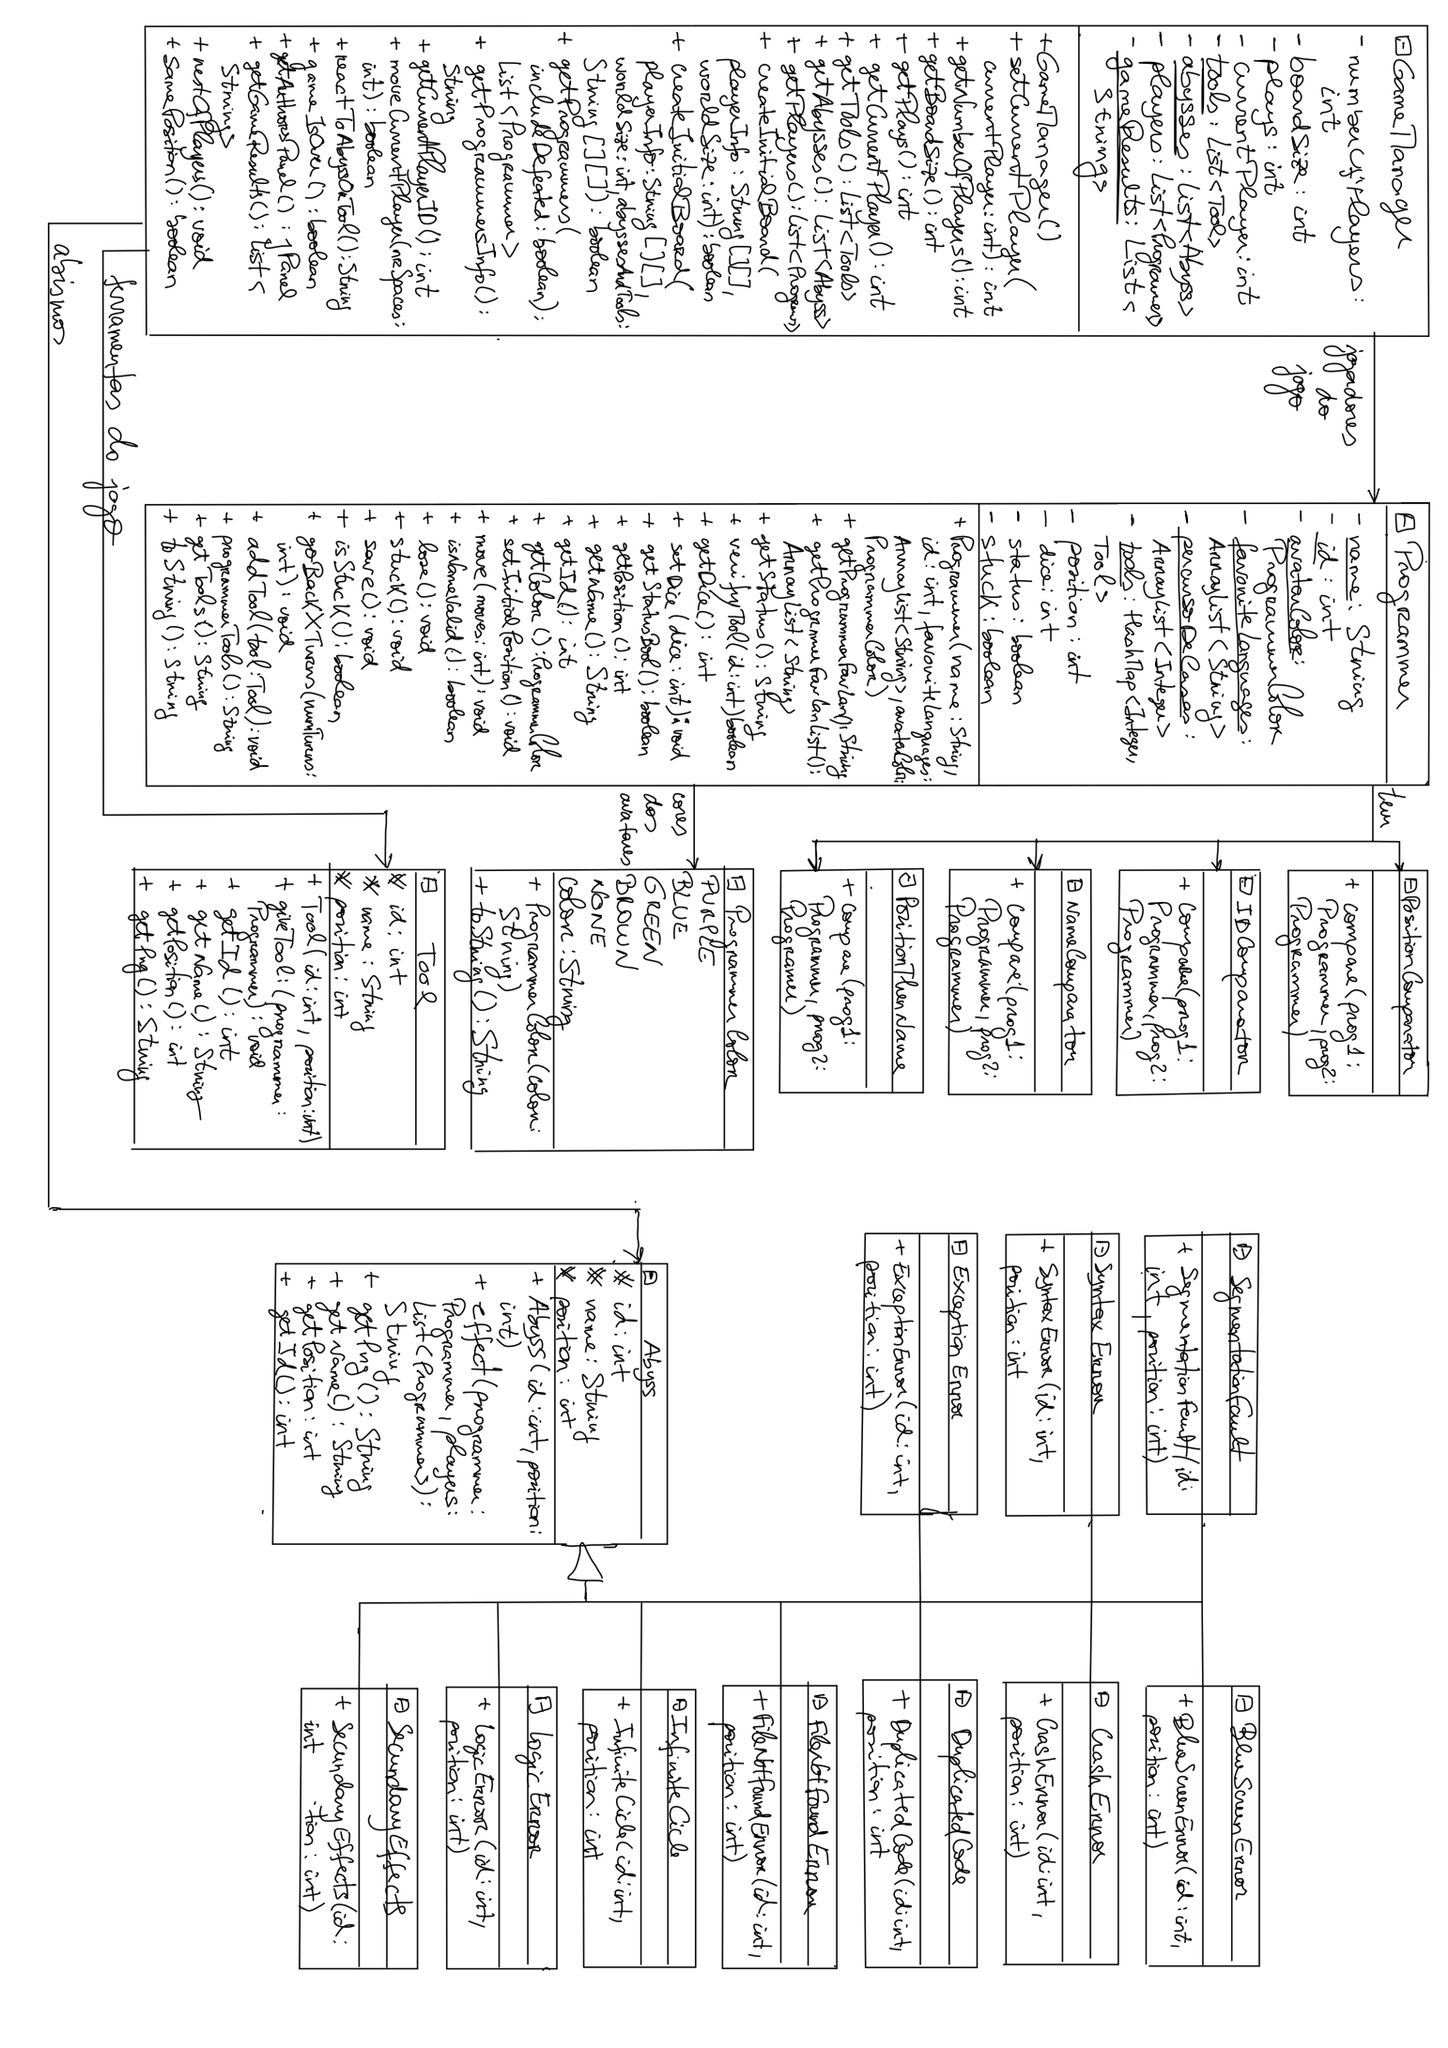 GameManager
- numberOfPlayers:
int
- boardSize: int
- plays: int
- currentPlayer: int
- tools: List<Tool>
- abysses: List<Abyss>
- players: List<Programer>
- gameResults: List<
String>
+GameManager()
+ setCurrentPlayer(
currentPlayer: int): int
+ getNumberOfPlayers(): int
+ getBoardSize(): int
+ getPlays(): int
+ getCurrentPlayer(): int
+ getTools(): List<Tools>
+ getAbysses(): List<Abyss>
+ getPlayers(): List<
+ createInitialBoard(
playerInfo: String[][],
worldSize: int): boolean
+ createInitialBoard(
playerInfo: String[][],
worldSize: int, abyssesAndTools:
String[][]): boolean
+ getProgrammers(
includeDefeated: boolean):
List<Programmer>
+ getProgrammersInfo():
String
+ getCurrentPlayerID(): int
+ moveCurrentPlayer(nrSpaces:
int): boolean
+ reactToAbyssOrTool(): String
+ gameIsOver(): boolean
+ getAuthorsPanel(): jPanel
+ getGameResults(): List<
String>
+ restOfPlayers(): void
+ samePosition(): boolean
jogadores
do
jogo
Programmer
- name: String
- id: int
- avatarColor:
ProgrammerColor
- favoriteLanguages:
ArrayList<String>
- percursoDeCasas:
ArrayList<Integer>
- tools: HashMap<Integer,
Tool>
- position: int
- dice: int
- status: boolean
- stuck: boolean
+ Programmer(name: String,
id: int, favoriteLanguages:
ArrayList<String>, avatarColor:
ProgrammerColor)
+ getProgrammerFavLan(): String
+ getProgrammerFavLanList():
ArrayList<String>
+ getStatus(): String
+ verifyTool(id: int) boolean
+ getDice(): int
+ setDice(dice: int): void
+ getStatusBool(): boolean
+ getPosition(): int
+ getName(): String
+ getId(): int
+ getColor(): ProgrammerColor
+ setInitialPosition(): void
+ move(moves: int): void
+ isNameValid(): boolean
+ lose(): void
+ stuck(): void
+ save(): void
+ isStuck(): boolean
+ goBackXTurns(numTurns:
int): void
+ addTool(tool: Tool): void
+ programmerTools(): String
+ getTools(): String
+ toString(): String
tem
cores
dos
avatares
PositionComparator
+ compare(prog1:
Programmer, prog2:
Programmer)
IDComparator
+ compare(prog1:
Programmer, prog2:
Programmer)
NameComparator
+ compare(prog1:
Programmer, prog2:
Programmer)
PositionThenName
+ compare(prog1:
Programmer, prog2:
Programer)
ProgrammerColor
PURPLE
BLUE
GREEN
BROWN
NONE
Color: String
+ ProgrammerColor(color:
String)
+ toString(): String
Tool
* id: int
* name: String
* position: int
+ Tool(id: int, position: int)
+ giveTool: (programmer:
Programmer): void
+ getId(): int
+ getName(): String
+ getPosition(): int
+ getPng(): String
ferramentas do jogo
abismos
SegmentationFault
+ SegmentationFault(id:
int, position: int)
Syntax Error
+ SyntaxError(id: int,
position: int
Exception Error
+ ExceptionError(id: int,
position: int)
Abyss
* id: int
* name: String
* position: int
+ Abyss(id: int, position:
int)
+ effect(programmer:
Programmer, players:
List<Programmers):
String
+ getPng(): String
+ getName(): String
+ getPosition: int
+ getId(): int
BlueScreenError
+ BlueScreenError(id: int,
position: int)
Crash Error
+ CrashError(id: int,
position: int)
DuplicatedCode
+ DuplicatedCode(id: int,
position: int
FileNotFound Error
+ FileNotFoundError(id: int,
position: int)
InfiniteCicle
+ InfiniteCicle(id: int,
position: int
Logic Error
+ LogicError(id: int,
position: int)
SecundaryEffects
+ SecundaryEffects(id:
int tion: int)